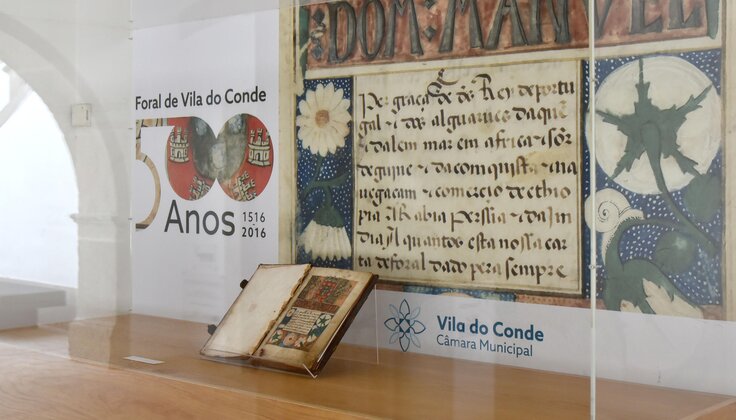 :DOM:MANVEL
Foral de Vila do Conde
500
Anos 1516
2016
Per graça de ds Rey de portu
gal ⁊ dos alguarues daquē
⁊ dalem mar em africa ⁊ sōr
de guine ⁊ da comquista ⁊ na
uegacam ⁊ comercio de ethio
pia Arabia Persia ⁊ da In
dia A quantos esta nossa car
ta de foral dado pera sempre
Vila do Conde
Câmara Municipal